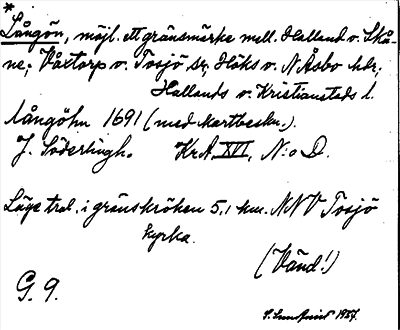 *
Långön, möjl. ett gränsmärke mell. Halland o. Skå-
ne; Våxtorp o. Tosjö sr, Höks o. N Åsbo hdr;
Hallands o. Kristianstads l.
Långöhn 1691 (med kartbeskr.).
J. Söderlingh. KrA XVI, N:o D.
Läge trol. i gränskröken 5,1 km. NNV Tosjö
kyrka.
(Vänd!)
G. 9.
1927.